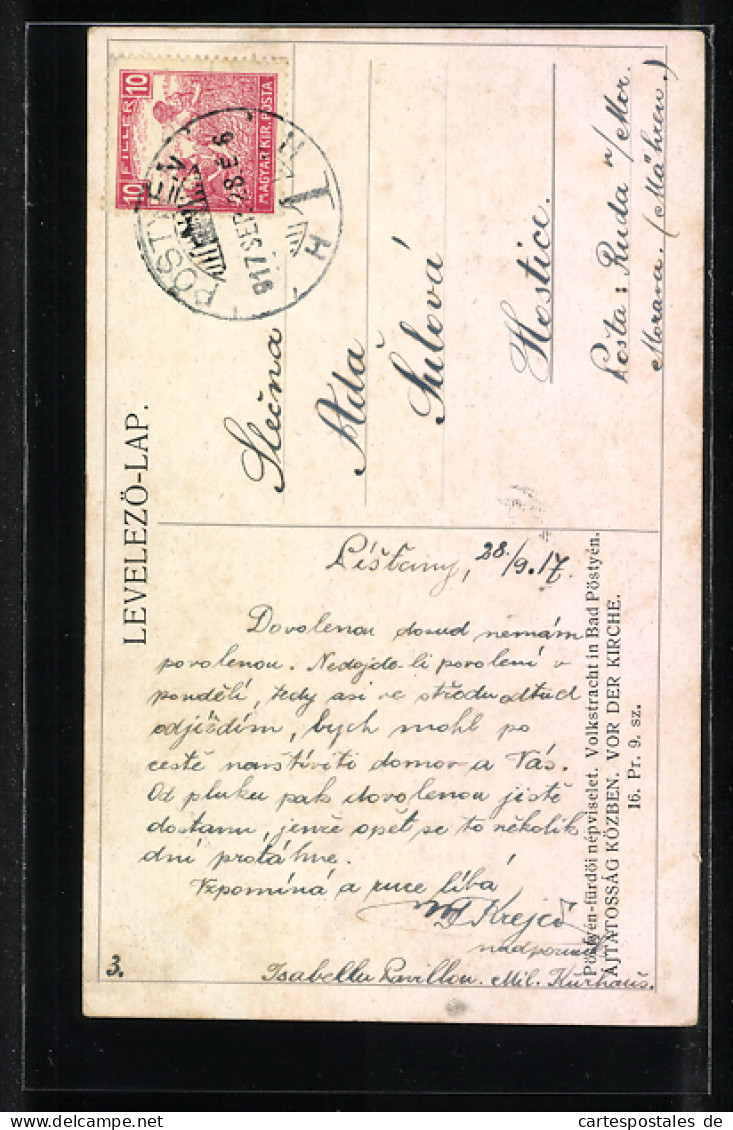 LEVELEZŐ-LAP.
10 FILLÉR 10
MAGYAR KIR. POSTA
917 SEP. 28 É 6
Slečna
Ada
Šulová
Hostice.
Pošta: Ruda n/Mor.
Morava. (Mähren.)
Píšťany, 28./9.17.
Dovolenou dosud nemám
povolenou. Nedojde-li povolení v
pondělí, tedy asi ve středu odtud
odjíždím, bych mohl po
cestě navštíviti domov a Vás.
Od pluku pak dovolenou jistě
dostanu, jenže opět se to několik
dní protáhne.
Vzpomíná a ruce líbá
Krejčí
nadporučík
Isabella Pavillon. Mil. Kurhaus.
3.
Pöstyén-fürdői népviselet. Volkstracht in Bad Pöstyén.
ÁJTATOSSÁG KÖZBEN. VOR DER KIRCHE.
16. Pr. 9. sz.
cartespostales de delcampe.net